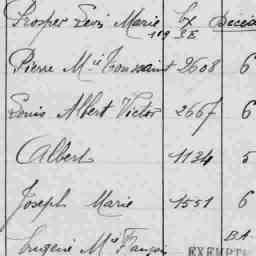 Prosper Louis Marie Ex Décéd
119 RE
Pierre M^ie Toussaint 2608 6
Louis Albert Victor 2667 6
Albert 1134 5
Joseph Marie 1551 6
B.A
Eugène M^ie Franço EXEMPT